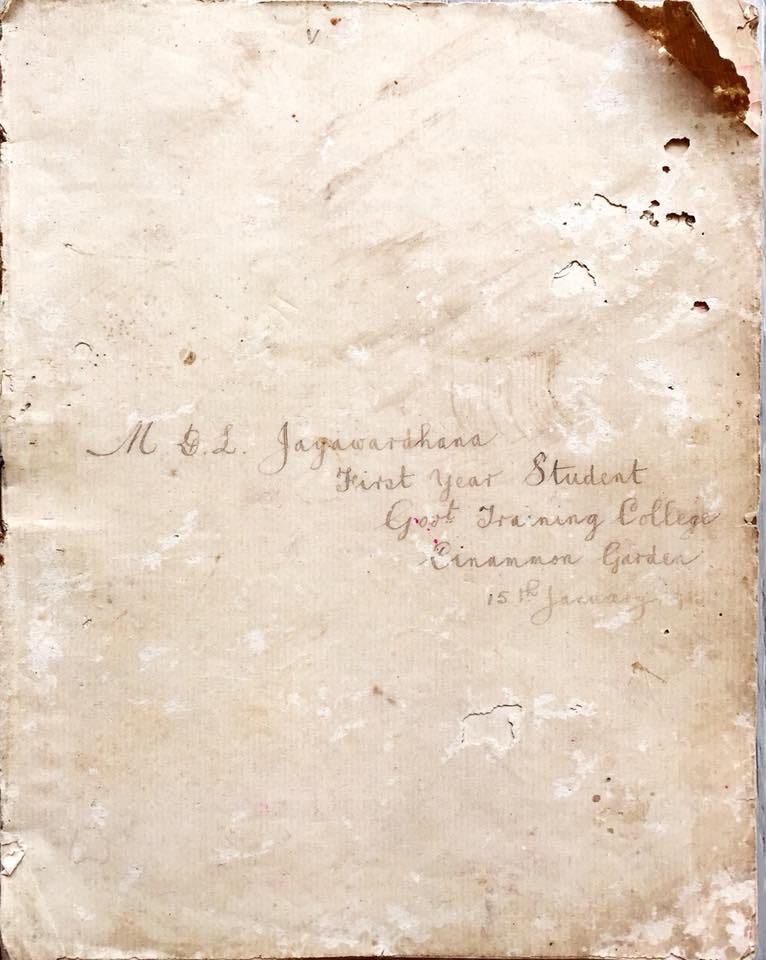 M D. L. Jayawardhana
First Year Student
Govt Training College
Cinammon Garden
15th January